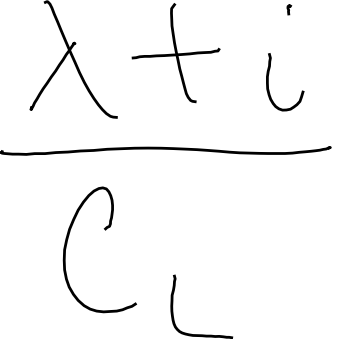 λ+i
C_L